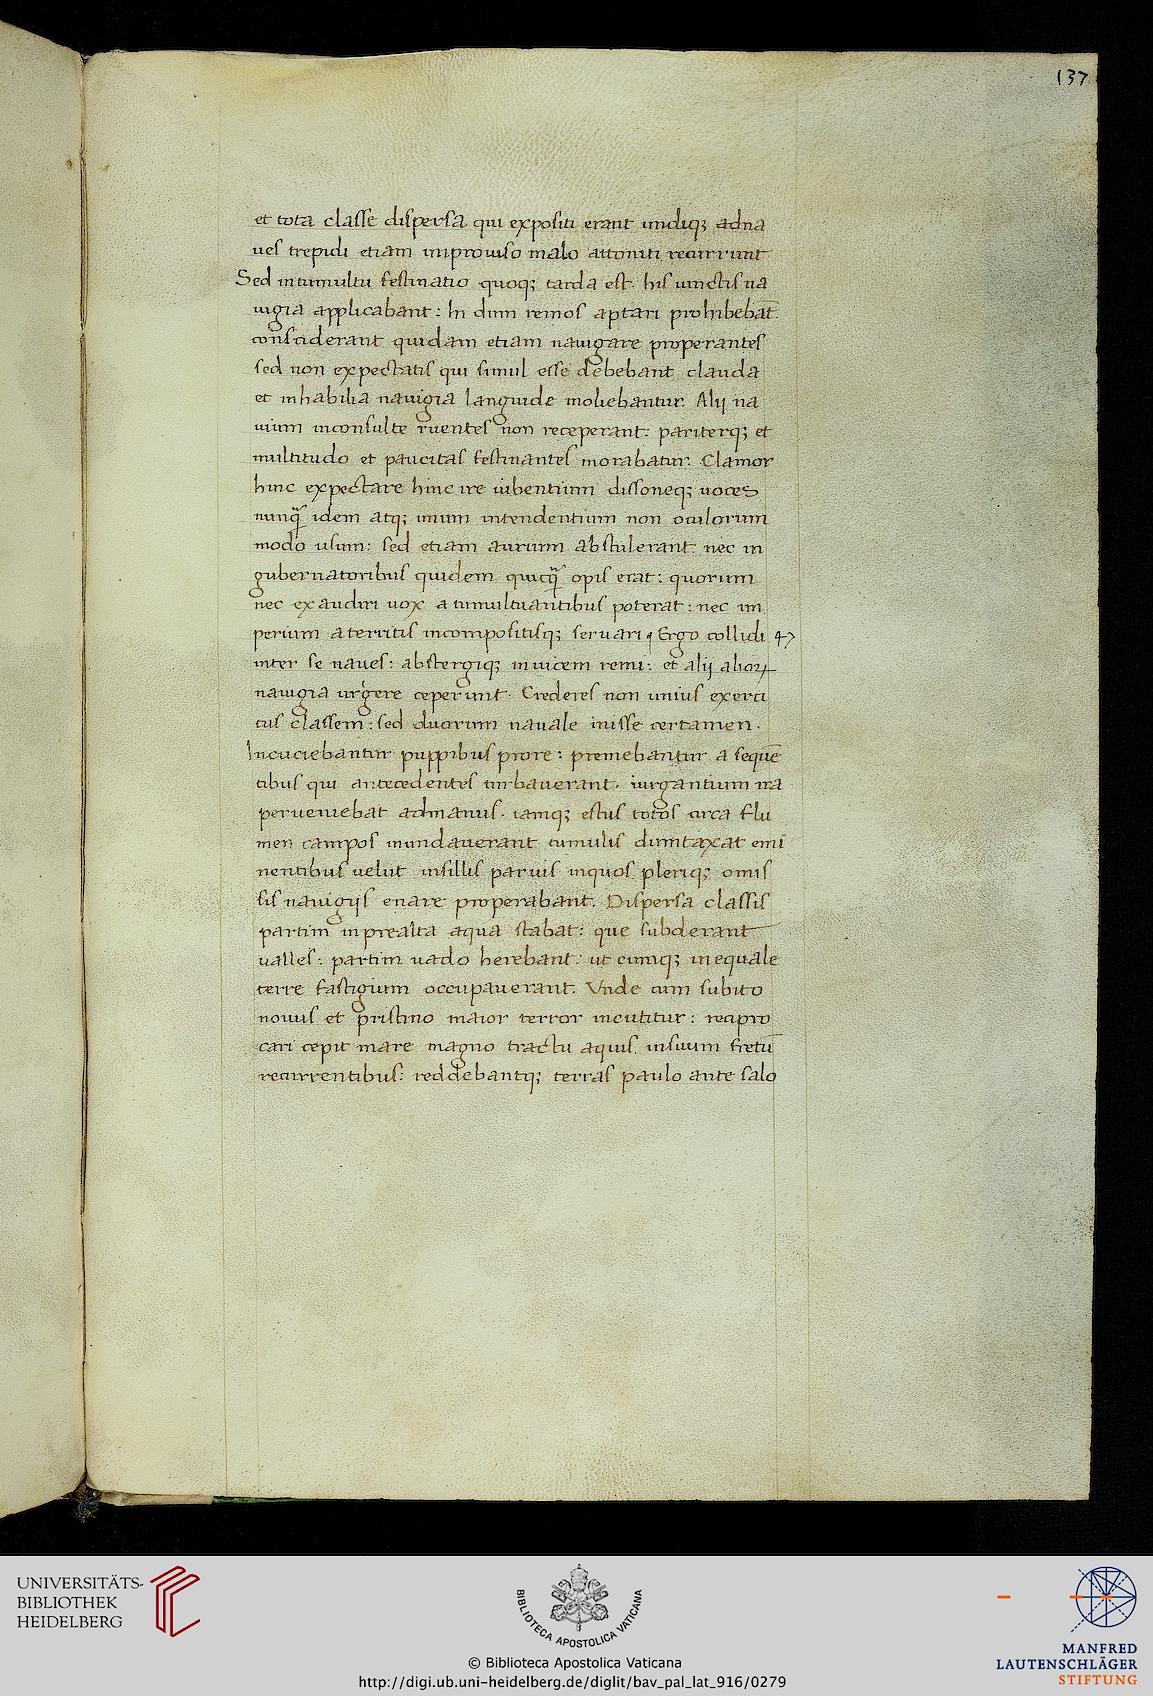 137
et tota classe dispersa qui expositi erant undiq; adna
ues trepidi etiam improuiso malo attoniti recurrunt
Sed intumultu festinatio quoq; tarda est. his uinctis na
uigia applicabant: hi dum remos aptari prohibebāt.
consciderant quidam etiam nauigare properantes
sed non expectatis qui simul esse debebant clauda
et inhabilia nauigia languide moliebantur. Alij na
uium inconsulte ruentes non receperant: pariterq; et
multitudo et paucitas festinantes morabatur. Clamor
hinc expectare hinc ire iubentium dissoneq; uoces
nunq̃ idem atq; unum intendentium non oculorum
modo usum: sed etiam aurium abstulerant. nec in
gubernatoribus quidem quicq̃ opis erat: quorum
nec exaudiri uox a tumultuantibus poterat: nec im
perium aterritis incompositisq; seruari Ergo collidi 47
inter se naues: abstergiq; inuicem remi: et alij alioꝝ
nauigia urgere ceperunt. Crederes non unius exerci
tus classem: sed duorum nauale inisse certamen.
Incuciebantur puppibus prore: premebantur a sequē
tibus qui antecedentes turbauerant. iurgantium ira
perueniebat admanus. iamq; estus totos circa flu
men campos inundauerant tumulis dumtaxat emi
nentibus velut insillis paruis inquos pleriq; omis
sis nauigijs enare properabant. Dispersa classis
partim inprealta aqua stabat: que subderant
ualles: partim uado herebant: ut cumq; inequale
terre fastigium occupauerant. Vnde cum subito
nouus et pristino maior terror incutitur: recipro
cari cepit mare magno tractu aquis insuum fretū
recurrentibus: reddebantq; terras paulo ante salo
UNIVERSITÄTS-
BIBLIOTHEK
HEIDELBERG
BIBLIOTECA APOSTOLICA VATICANA
MANFRED
LAUTENSCHLÄGER
STIFTUNG
© Biblioteca Apostolica Vaticana
http://digi.ub.uni-heidelberg.de/diglit/bav_pal_lat_916/0279